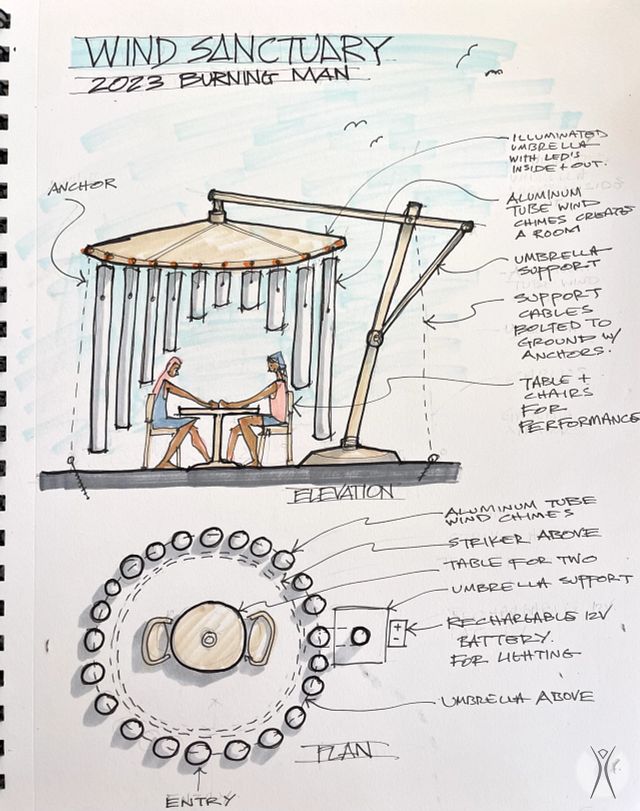 WIND SANCTUARY
2023 BURNING MAN
ANCHOR
ILLUMINATED
UMBRELLA
WITH LED'S
INSIDE + OUT.
ALUMINUM
TUBE WIND
CHIMES CREATES
A ROOM
UMBRELLA
SUPPORT
SUPPORT
CABLES
BOLTED TO
GROUND W/
ANCHORS.
TABLE +
CHAIRS
FOR
PERFORMANCE
ELEVATION
ALUMINUM TUBE
WIND CHIMES
STRIKER ABOVE
TABLE FOR TWO
UMBRELLA SUPPORT
RECHARGABLE 12V
BATTERY.
FOR LIGHTING
+
-
UMBRELLA ABOVE
PLAN
ENTRY